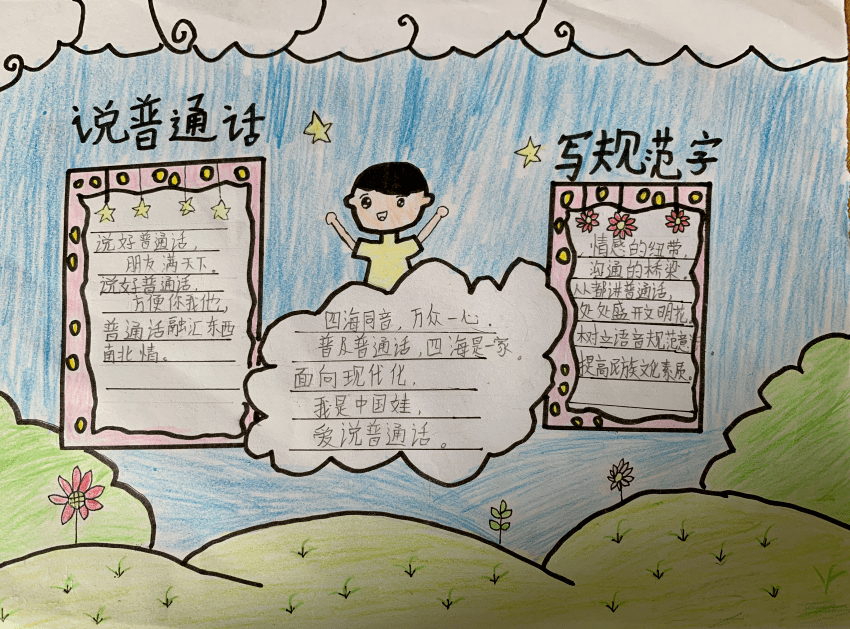 说普通话
写规范字
说好普通话，
朋友满天下。
说好普通话，
方便你我他，
普通话融汇东西
南北情。
四海同音，万众一心．
普及普通话，四海是一家。
面向现代化，
我是中国娃，
爱说普通话。
情感的纽带，
沟通的桥梁
人人都讲普通话，
处处盛开文明花，
树立语言规范意
提高民族文化素质。